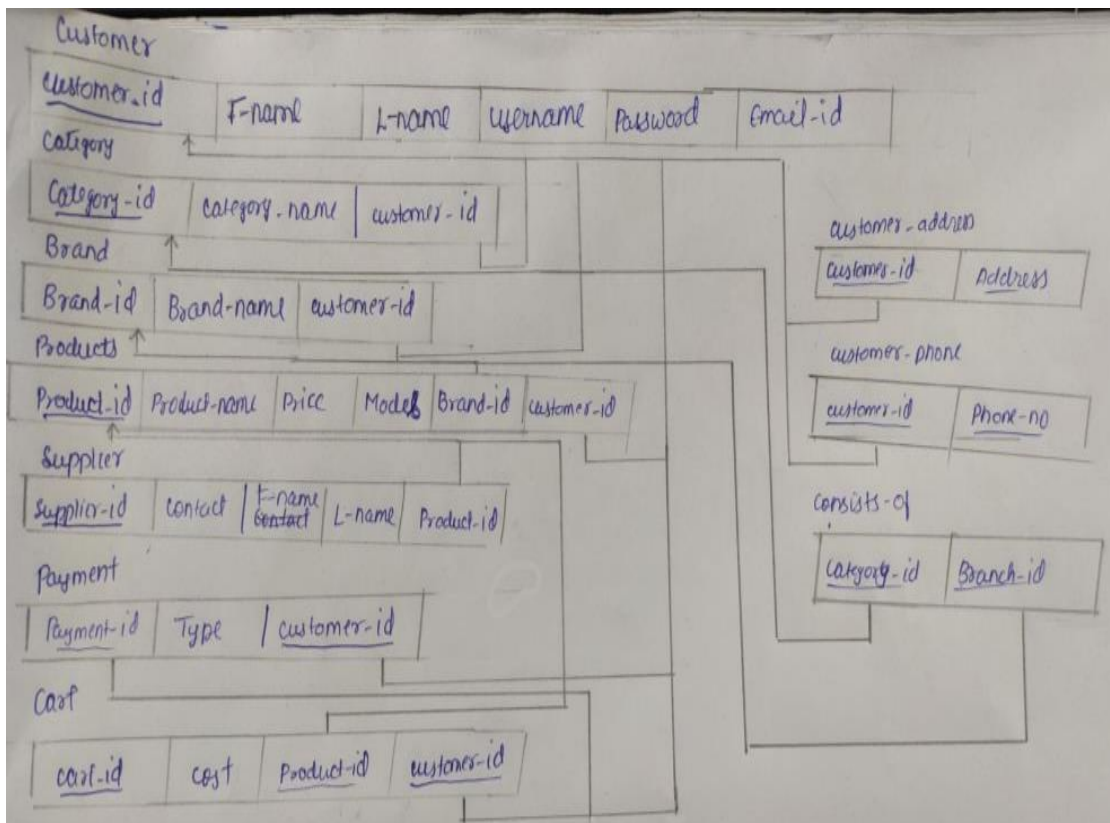 Customer
customer_id F-name L-name username Password Email-id
Category
Category-id category-name customer-id
Brand
Brand-id Brand-name customer-id
Products
Product-id Product-name Price Model Brand-id customer-id
Supplier
Supplier-id contact F-name L-name Product-id
contact
Payment
Payment-id Type customer-id
Cart
cart-id cost Product-id customer-id
customer-address
customer-id Address
customer-phone
customer-id Phone-no
consists-of
category-id Branch-id